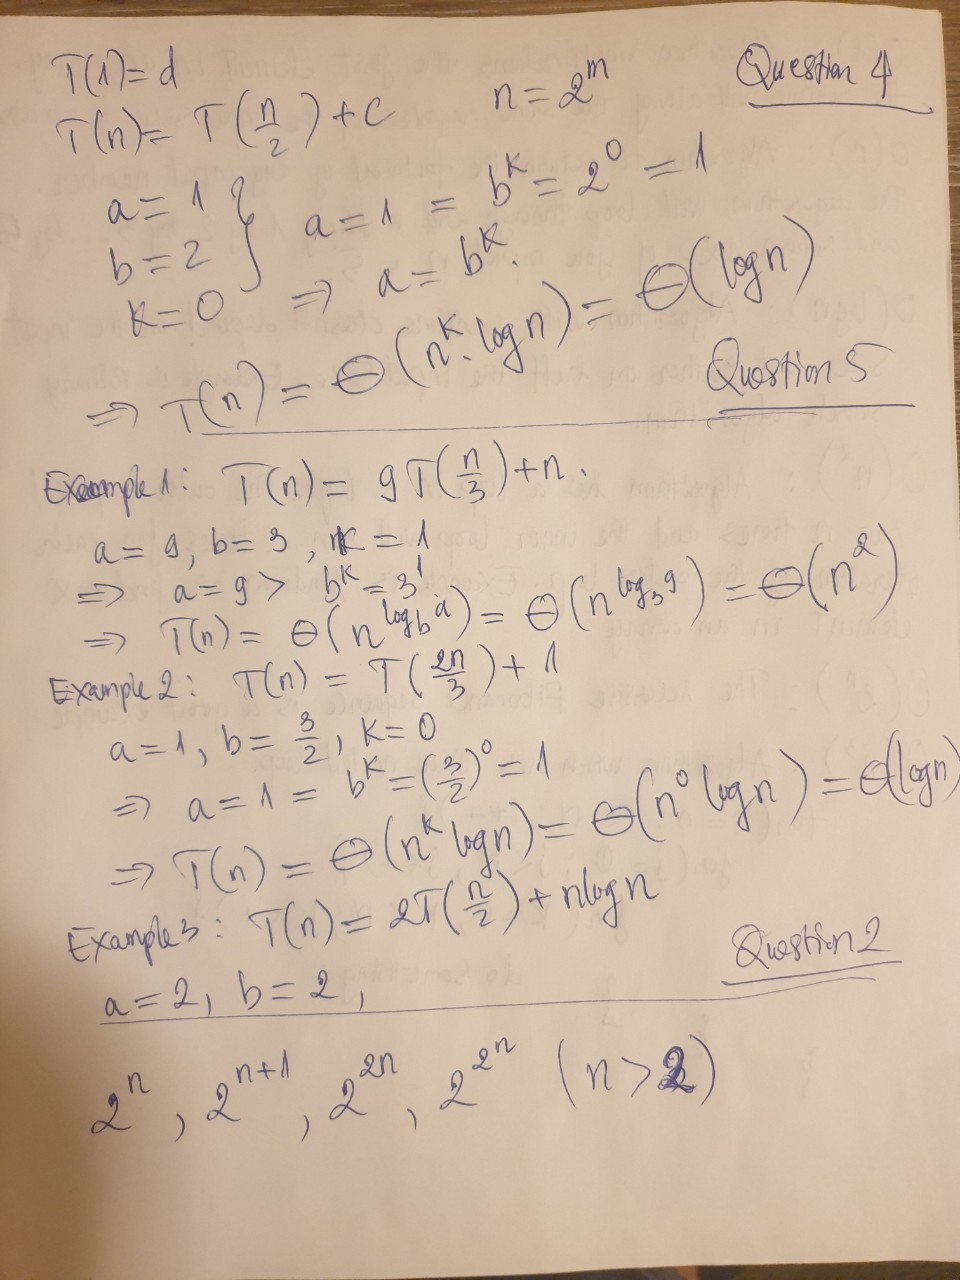 Question 4
T(1) = d
T(n) = T(n/2) + c n = 2^m
a = 1
b = 2 } a = 1 = b^k = 2^0 = 1
k = 0 ⇒ a = b^k.
⇒ T(n) = Θ(n^k. log n) = Θ(log n)
Question 5
Example 1: T(n) = 9T(n/3) + n.
a = 9, b = 3, k = 1
⇒ a = 9 > b^k = 3^1.
⇒ T(n) = Θ(n^(log_b a)) = Θ(n^(log_3 9)) = Θ(n^2)
Example 2: T(n) = T(2n/3) + 1
a = 1, b = 3/2, k = 0
⇒ a = 1 = b^k = (3/2)^0 = 1
⇒ T(n) = Θ(n^k log n) = Θ(n^0 log n) = Θ(log n)
Example 3: T(n) = 2T(n/2) + n log n
a = 2, b = 2,
Question 2
2^n, 2^(n+1), 2^(2n), 2^(2^n) (n > 2)